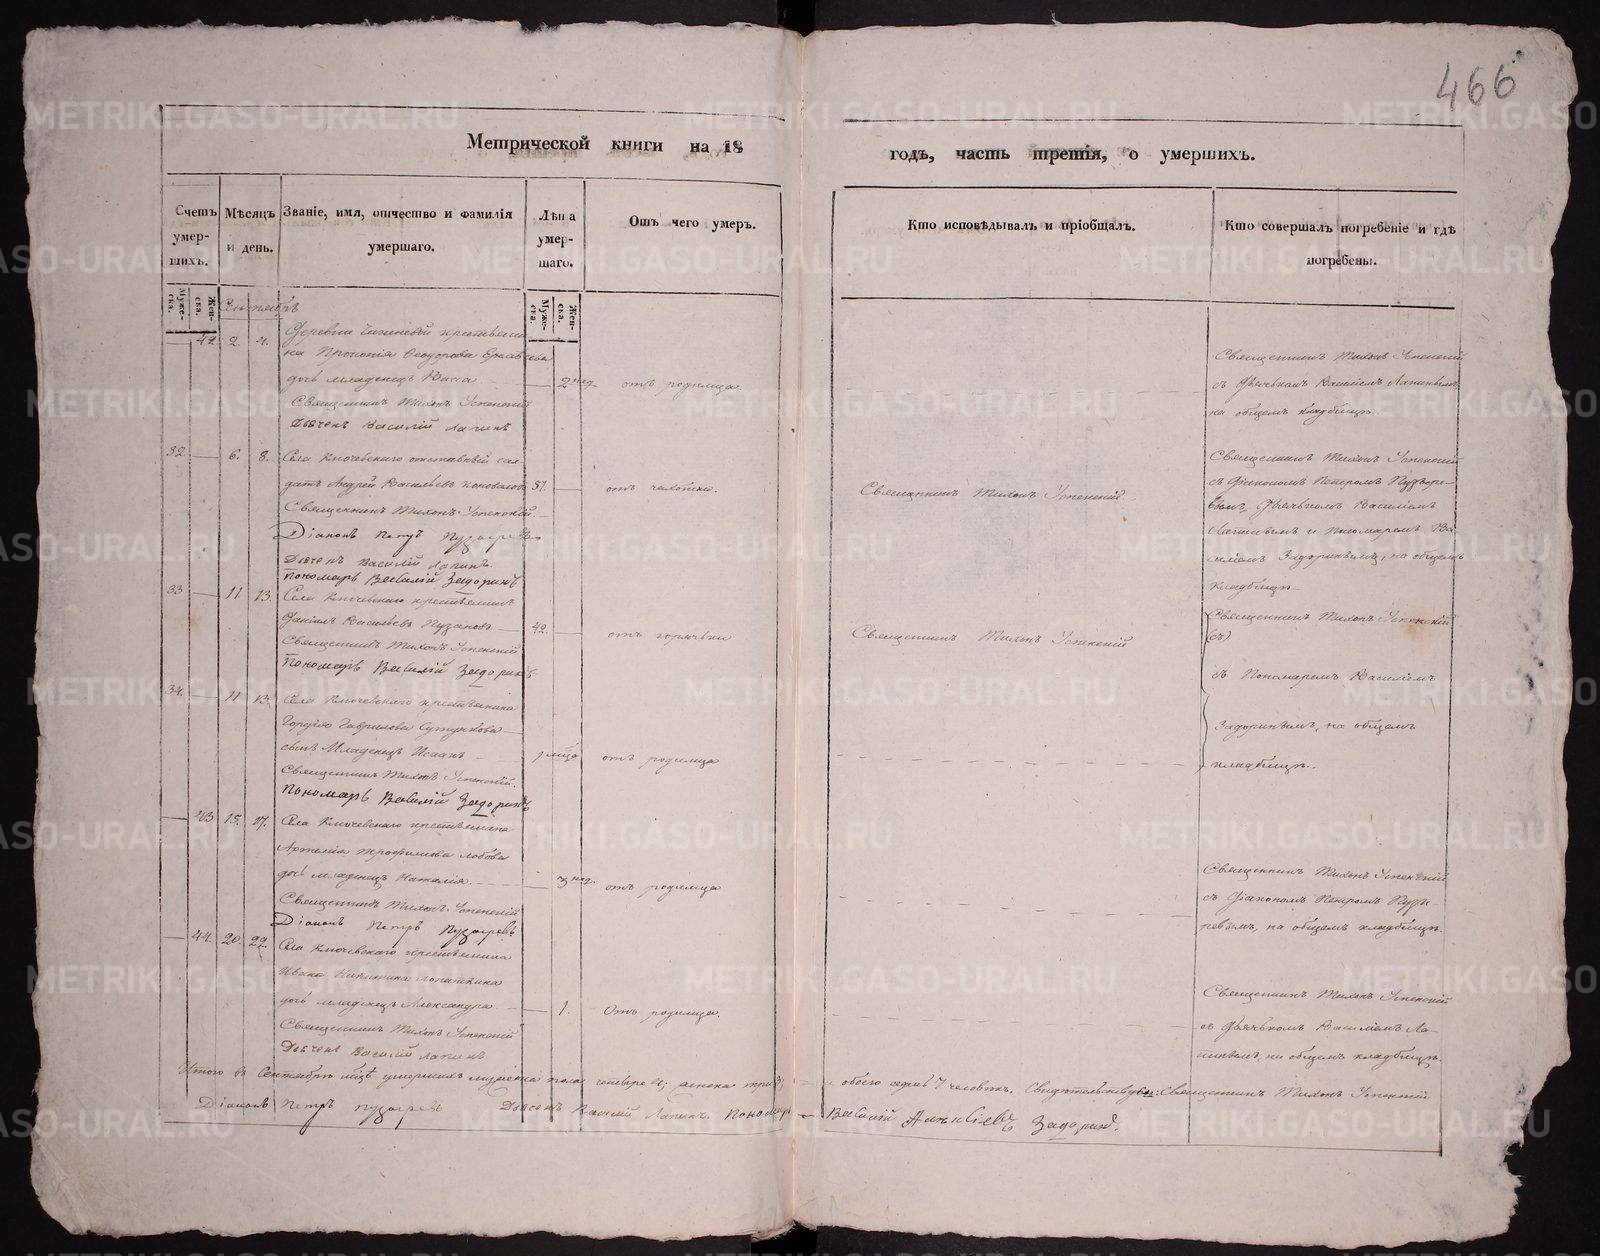 466
Метрической книги на 18
годъ, часть третія, о умершихъ.
Счетъ умер-шихъ.
Мѣсяцъ и день.
Званіе, имя, отчество и фамилія умершаго.
Лѣта умер-шаго.
Отъ чего умеръ.
Кто исповѣдывалъ и пріобщалъ.
Кто совершалъ погребеніе и гдѣ погребены.
Муже-ска.
Жен-ска.
Муже-ска.
Жен-ска.
Сентябрь
42 2. 4.
Деревни крестьяни-
на Прокопія Ѳеодорова
дочь младенецъ
2 нед. отъ родимца
Священникъ Тихонъ Успенскій
Дьячекъ Василій Лапинъ
Священникъ Тихонъ Успенскій
съ Дьячкомъ Василіемъ Лапинымъ
на общемъ кладбищѣ.
32 6. 8.
Села Ключевскаго отставный сол-
датъ Андрей Васильевъ Коноваловъ
57. отъ чахотки.
Священникъ Тихонъ Успенскій.
Діаконъ Петръ Пузыревъ
Дьячекъ Василій Лапинъ.
Пономарь Василій Задоринъ
Священникъ Тихонъ Успенскій
Священникъ Тихонъ Успенскій
съ Діакономъ Петромъ Пузыре-
вымъ, Дьячкомъ Василіемъ
Лапинымъ и Пономаремъ Ва-
силіемъ Задоринымъ, на общемъ
кладбищѣ
33 11. 13.
Села Ключевскаго крестьянинъ
Даніилъ Васильевъ Пузановъ
42. отъ горячки
Священникъ Тихонъ Успенскій
Пономарь Василій Задоринъ
Священникъ Тихонъ Успенскій
Священникъ Тихонъ Успенскій
(съ)
съ Пономаремъ Василіемъ
Задоринымъ, на общемъ
кладбищѣ.
34. 11 13.
Села Ключевскаго крестьянина
Гаврилова
сынъ Младенецъ Исаакъ
отъ родимца
Священникъ Тихонъ Успенскій.
Пономарь Василій Задоринъ
43 15. 17.
Села Ключевскаго крестьянина
Артемія Трофимова Лобова
дочь младенецъ Наталія.
3 нед. отъ родимца
Священникъ Тихонъ Успенскій
Діаконъ Петръ Пузыревъ
Священникъ Тихонъ Успенскій
съ Діакономъ Петромъ Пузы-
ревымъ, на общемъ кладбищѣ.
44. 20. 22.
Села Ключевскаго крестьянина
Ивана Никитина Лопаткина
дочь младенецъ Александра
1. Отъ родимца.
Священникъ Тихонъ Успенскій
Дьячекъ Василій Лапинъ
Священникъ Тихонъ Успенскій
съ Дьячкомъ Василіемъ Ла-
пинымъ, на общемъ кладбищѣ.
Итого въ Сентябрѣ м͠цѣ умершихъ мужеска пола четыре 4; женска три 3; а обоего седмь 7 человѣкъ. Свидѣтельствуемъ: Священникъ Тихонъ Успенскій
Діаконъ Петръ Пузыревъ Дьячекъ Василій Лапинъ. Пономарь Василій Алексіевъ Задоринъ.
METRIKI.GASO-URAL.RU